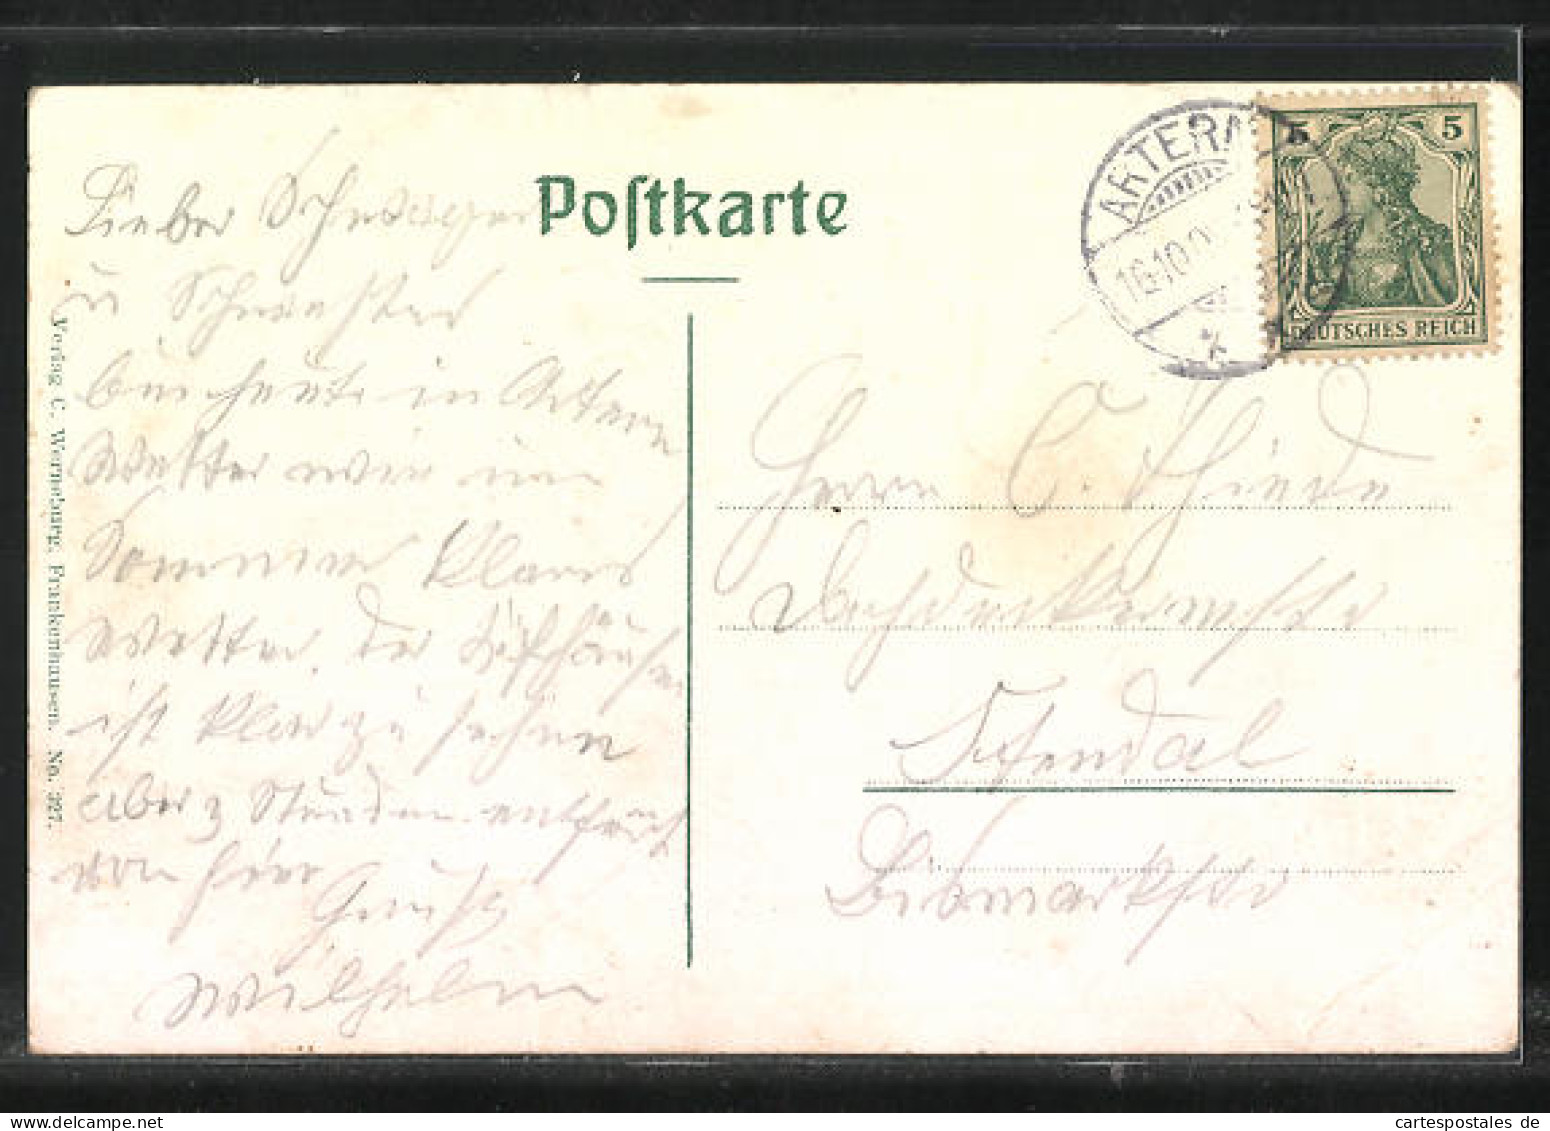 Postkarte
Lieber Schwager
u Schwester
bin heute in Artern
Wetter wie im
Sommer klares
Wetter. Der Kiffhäuser
ist klar zu sehen
aber 3 Stunden entfernt
von hier
Gruß
Wilhelm
Verlag C. Werneburg, Frankenhausen. No. 227.
ARTERN
16.10.0
5 5
DEUTSCHES REICH
Herrn C. Thiede
Stendal
Bismarkstr
cartespostales de